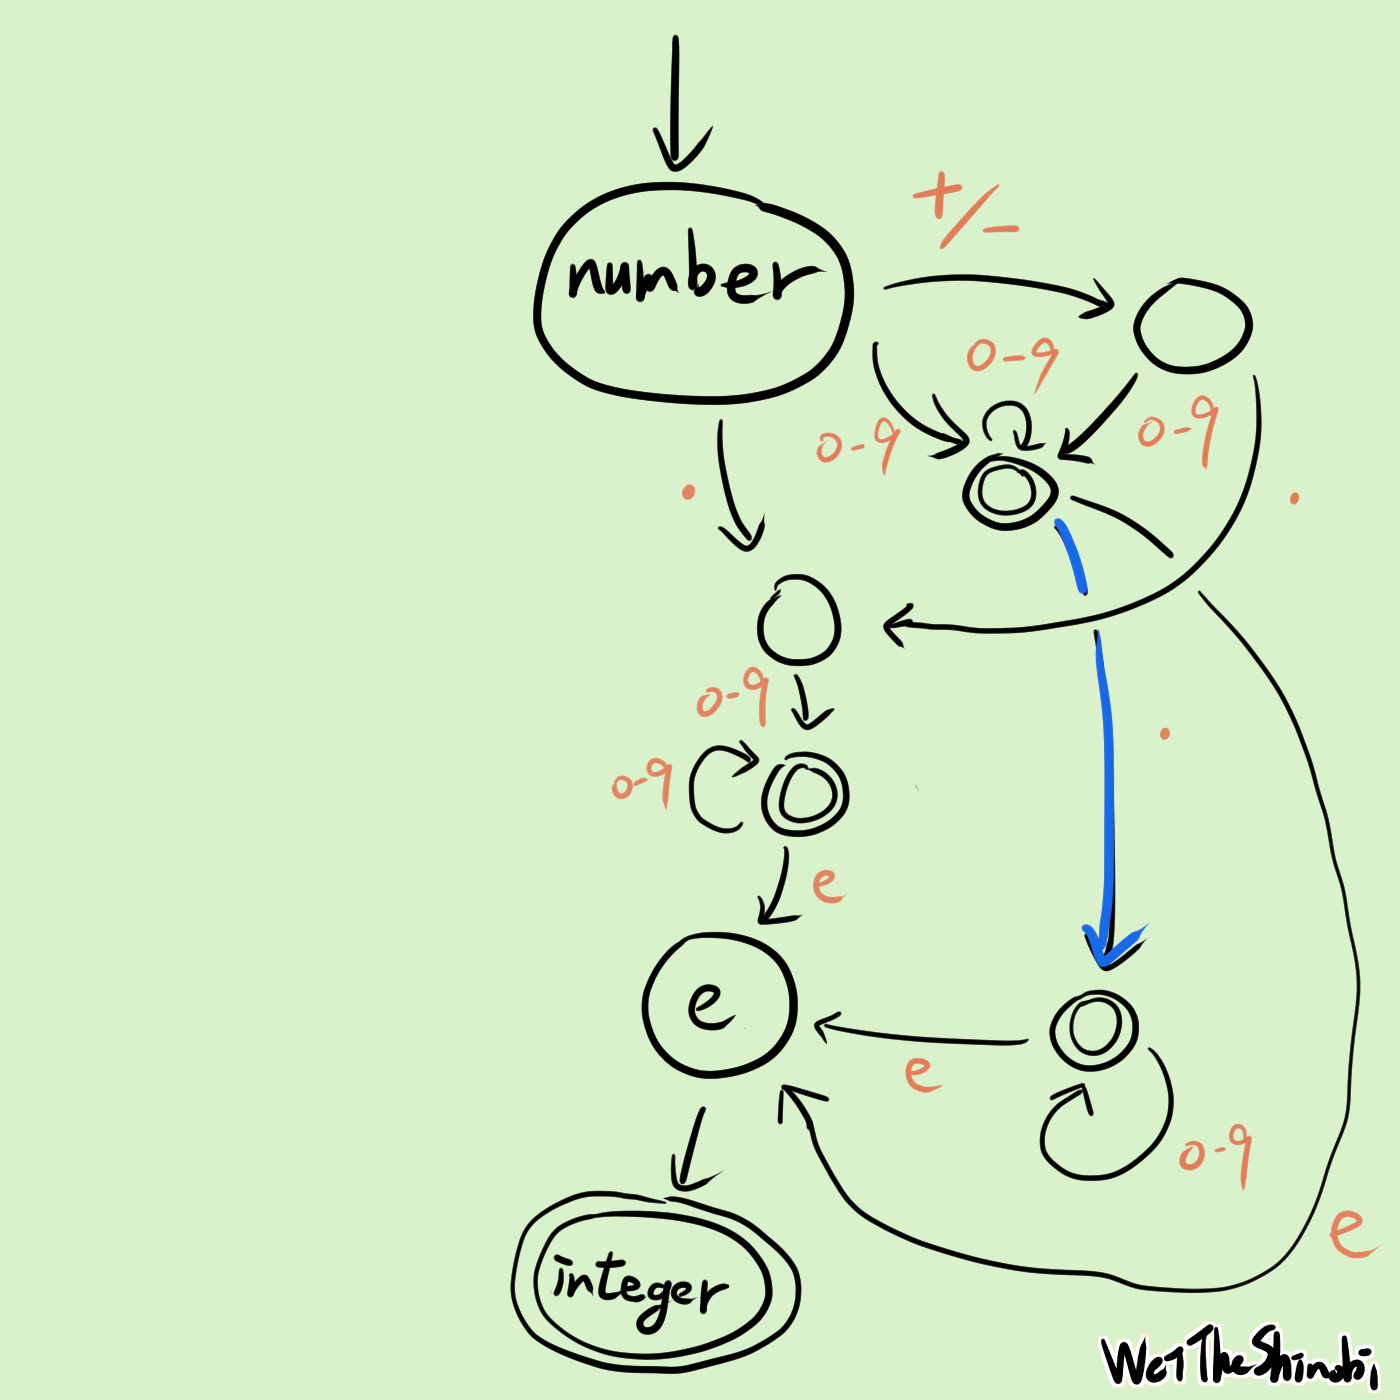 +/-
number
0-9
0-9
0-9
.
.
0-9
.
0-9
e
e
e
0-9
e
integer
WeiTheShinobi